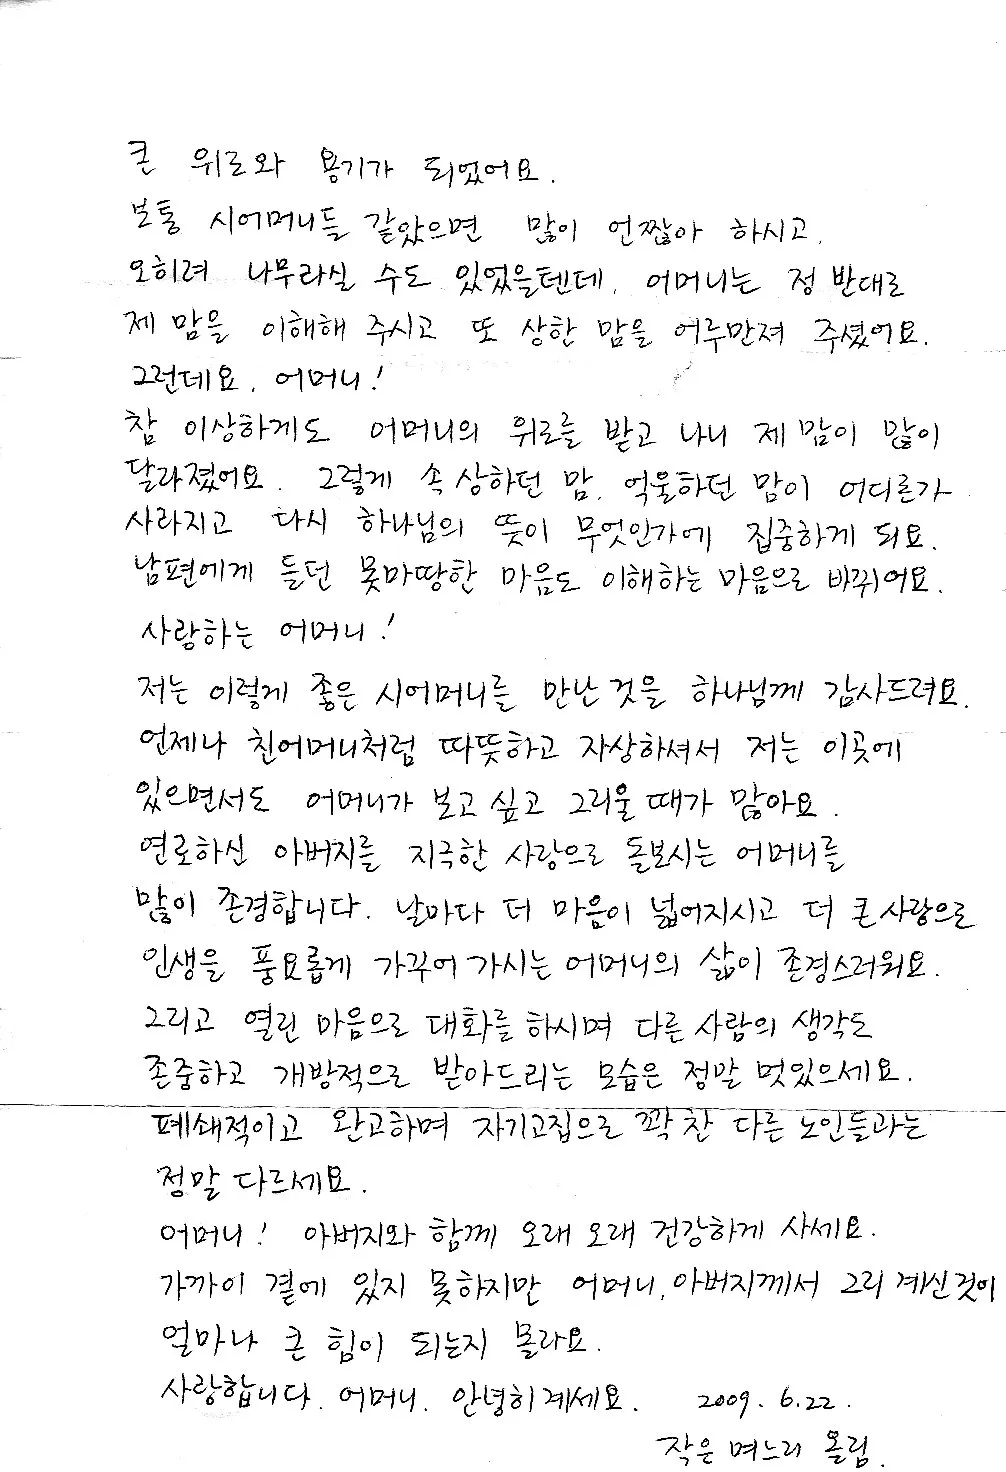 큰 위로와 용기가 되었어요.
보통 시어머니들 같았으면 많이 언짢아 하시고,
오히려 나무라실 수도 있었을텐데, 어머니는 정 반대로
제 맘을 이해해 주시고 또 상한 맘을 어루만져 주셨어요.
그런데요, 어머니!
참 이상하게도 어머니의 위로를 받고 나니 제 맘이 많이
달라졌어요. 그렇게 속 상하던 맘, 억울하던 맘이 어디론가
사라지고 다시 하나님의 뜻이 무엇인가에 집중하게 되요.
남편에게 들던 못마땅한 마음도 이해하는 마음으로 바뀌어요.
사랑하는 어머니!
저는 이렇게 좋은 시어머니를 만난 것을 하나님께 감사드려요.
언제나 친어머니처럼 따뜻하고 자상하셔서 저는 이곳에
있으면서도 어머니가 보고 싶고 그리울 때가 많아요.
연로하신 아버지를 지극한 사랑으로 돌보시는 어머니를
많이 존경합니다. 날마다 더 마음이 넓어지시고 더 큰 사랑으로
인생을 풍요롭게 가꾸어 가시는 어머니의 삶이 존경스러워요.
그리고 열린 마음으로 대화를 하시며 다른 사람의 생각도
존중하고 개방적으로 받아드리는 모습은 정말 멋있으세요.
폐쇄적이고 완고하며 자기고집으로 꽉 찬 다른 노인들과는
정말 다르세요.
어머니! 아버지와 함께 오래 오래 건강하게 사세요.
가까이 곁에 있지 못하지만 어머니, 아버지께서 그리 계신것이
얼마나 큰 힘이 되는지 몰라요.
사랑합니다. 어머니. 안녕히계세요. 2009. 6.22.
작은 며느리 올림.